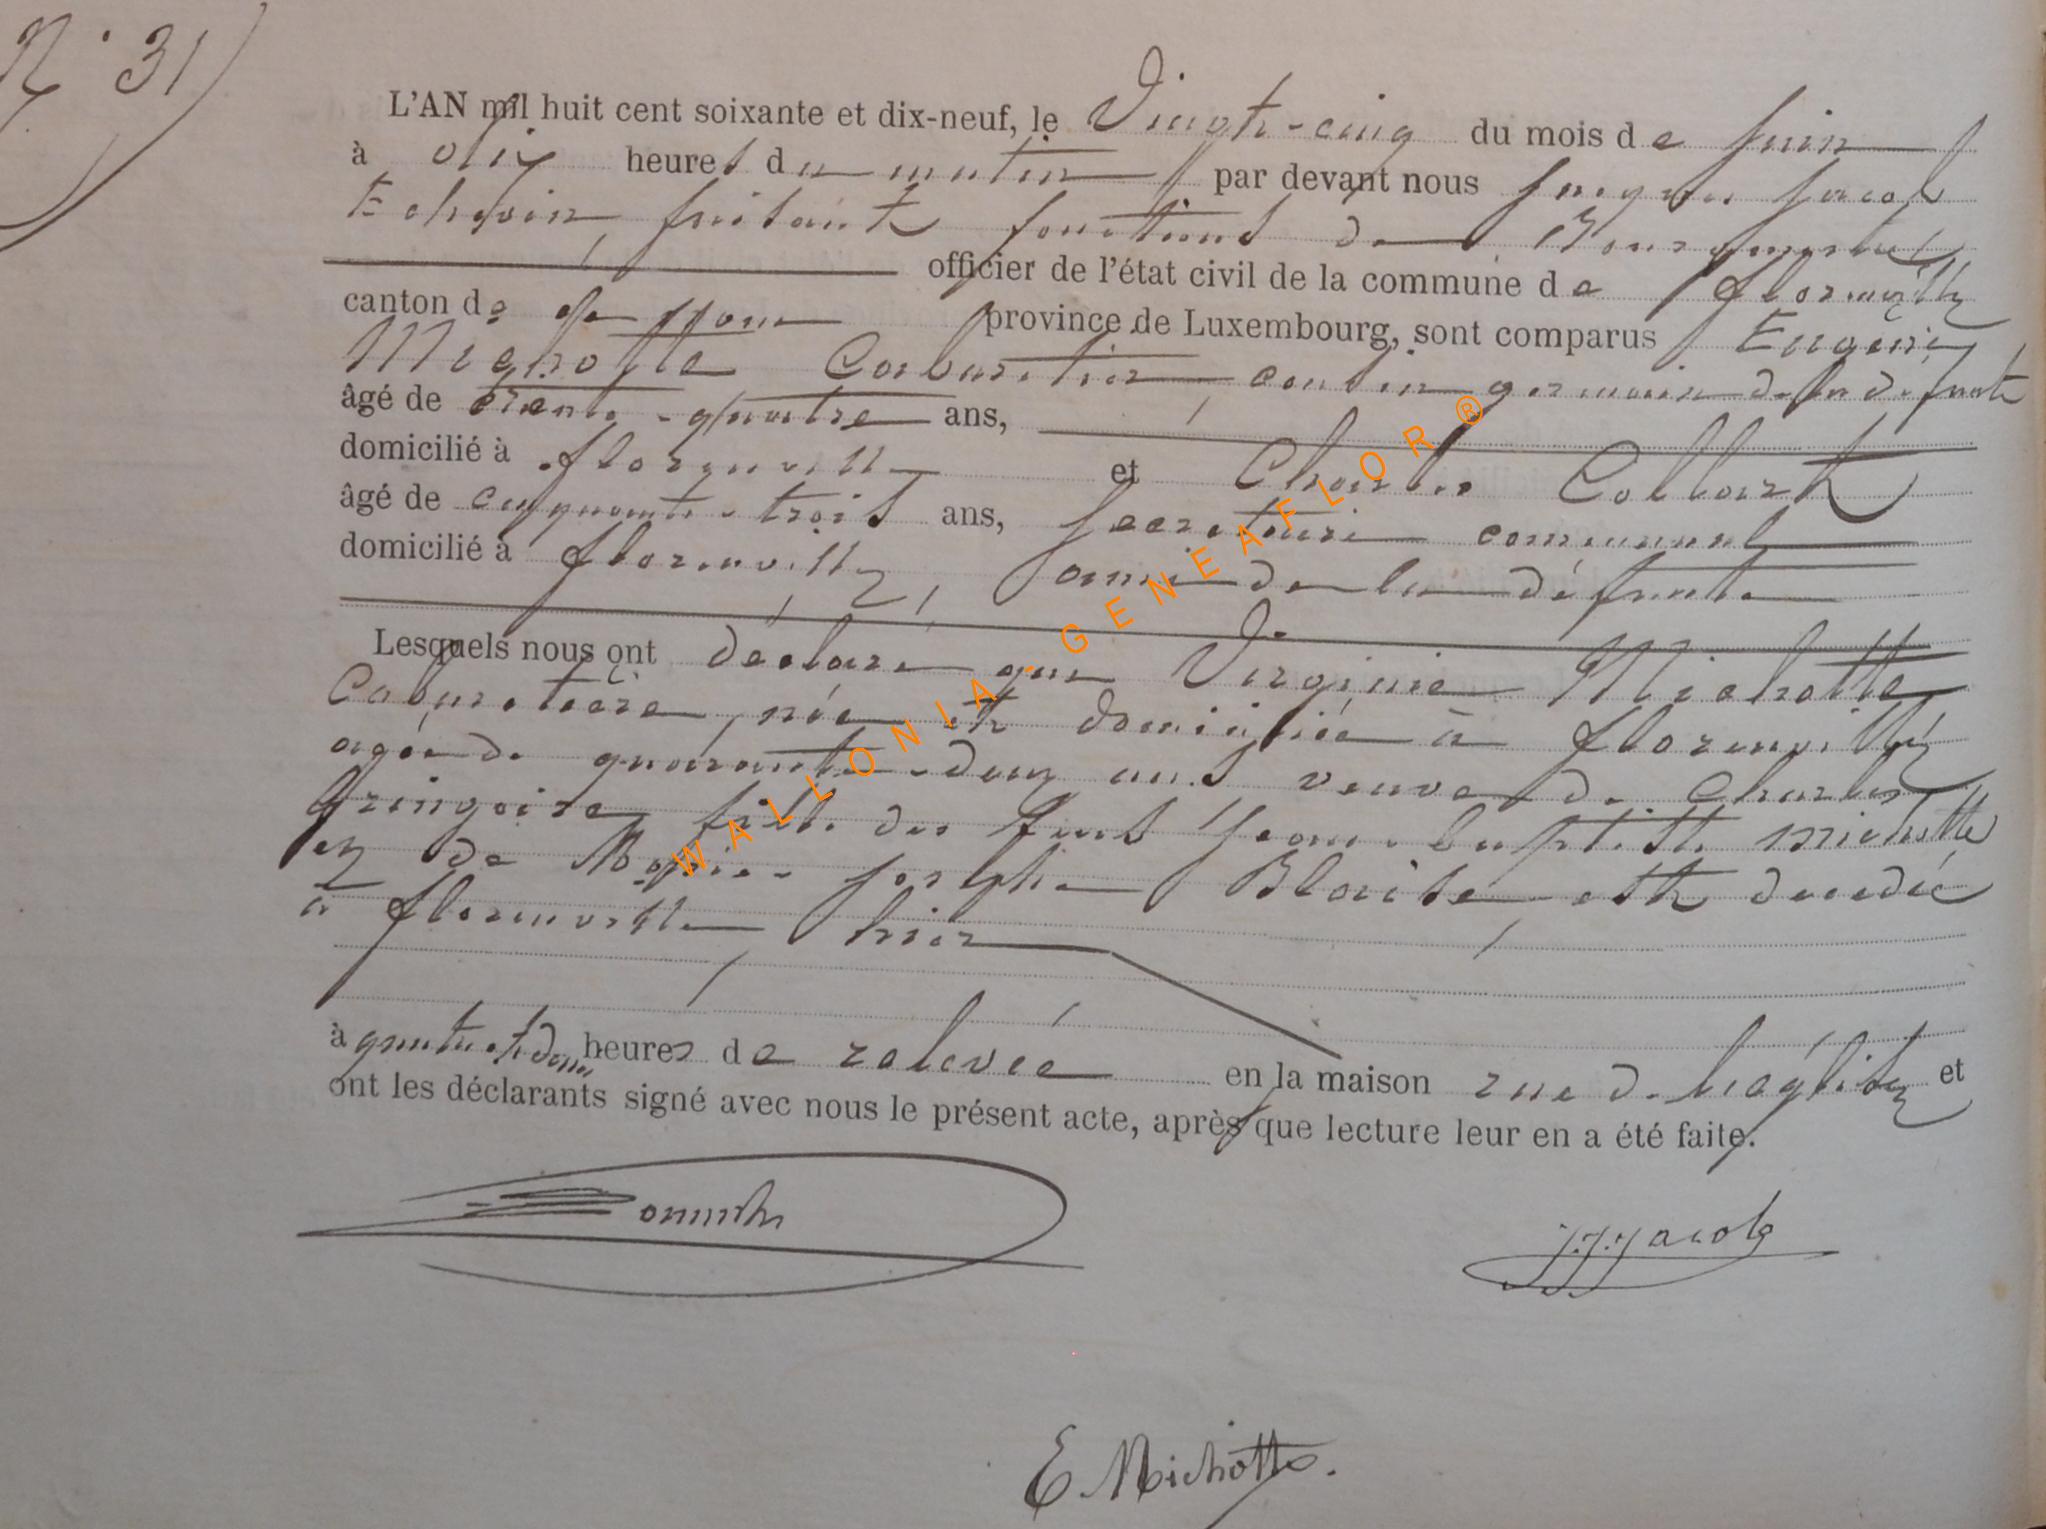 N° 31
L'AN mil huit cent soixante et dix-neuf, le Vingt-cinq du mois de Juin
à dix heures du matin par devant nous Jacques Jacob
Echevin faisant fonctions de Bourgmestre
officier de l'état civil de la commune de florenville
canton de province de Luxembourg, sont comparus Eugène
Michotte Cabaretier, cousin germain de la défunte
âgé de trente-quatre ans,
domicilié à florenville et Charles Collart
âgé de cinquante-trois ans, Secrétaire communal
domicilié à florenville, ami de la défunte
Lesquels nous ont déclaré que Virginie Michotte
Cabaretière, née et domiciliée à florenville
agée de quarante-deux ans veuve de Charles
Gringoire fille des feus Jean-baptiste michotte
et de Marie-Joseph Blaise, est decedée
à florenville, hier
à quatre et demi heures de relevée en la maison rue de l'église et
ont les déclarants signé avec nous le présent acte, après que lecture leur en a été faite.
J.J. Jacob
E. Michotte.
WALLONIA - GENEAFLOR ®